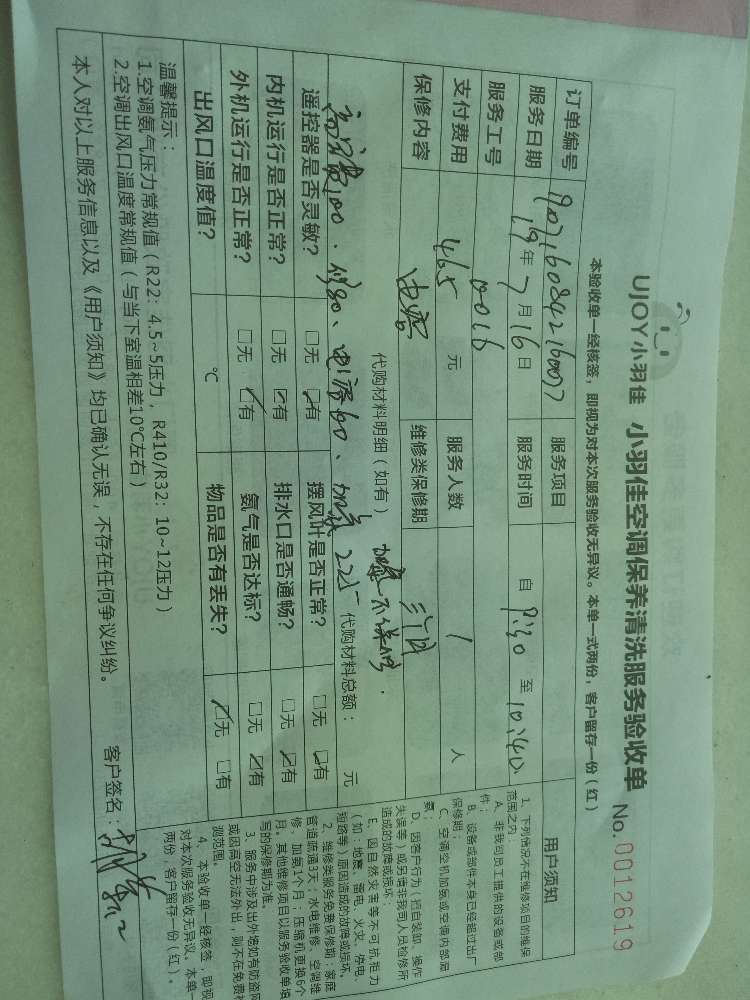 UJOY小羽佳 小羽佳空调保养清洗服务验收单 No.0012619
本验收单一经核签，即视为对本次服务验收无异议。本单一式两份，客户留存一份（红）
订单编号 服务项目
服务日期 19年7月16日 服务时间 自 9:30 至 10:40
服务工号 0016
支付费用 465 元 服务人数 1 人
保修内容 电容 维修类保修期 三个月
代购材料明细（如有） 加氨不保修.
电容60、加氨225 代购材料总额： 元
遥控器是否灵敏？ □无 ☑有 摆风叶是否正常？ □无 ☑有
内机运行是否正常？ □无 ☑有 排水口是否通畅？ □无 ☑有
外机运行是否正常？ □无 ☑有 氨气是否达标？ □无 ☑有
出风口温度值？ ℃ 物品是否有丢失？ ☑无 □有
温馨提示：
1.空调氨气压力常规值（R22：4.5~5压力，R410/R32：10~12压力）
2.空调出风口温度常规值（与当下室温相差10℃左右）
本人对以上服务信息以及《用户须知》均已确认无误，不存在任何争议纠纷。
客户签名：
用户须知
1、下列情况不在维修项目的维保
范围之内：
A、非我司员工提供的设备或部
件；
B、设备或部件本身已经超过出厂
保修期；
C、空调空机加氨或空调内部漏
氨；
D、因客户行为（擅自装卸、操作
失误等）或另请非我司人员检修所
造成的故障或损坏；
E、因自然灾害等不可抗拒力
（如：地震、雷电、火灾、停电、
短路等）原因造成的故障或损坏。
2、维修类服务免费保修期：家庭
管道疏通3天；水电维修、空调维
修、加氨1个月；压缩机更换6个
月；其他维修项目以服务验收单填
写的保修期为准。
3、服务中涉及出外墙如有防盗网
或因高空无法外出，则不在免费检
测范围。
4、本验收单一经核签，即视
对本次服务验收无异议。本单一
两份，客户留存一份（红）。